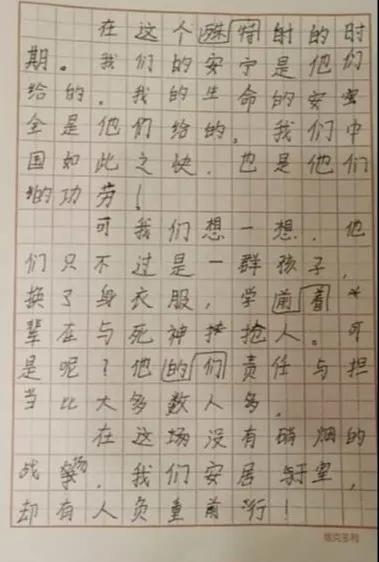 在这个殊特时的时
期。我们的安宁是他们
给的。我的生命的安
全是他们给的，我们中
国如此之快，也是他们
的功劳！
可我们想一想，他
们只不过是一群孩子，
换了身衣服，学前着
辈在与死神抢人。可
是呢？他的们责任与担
当比大多数人多。
在这场没有硝烟的
战，我们安居于室，
却有人负重前行！
维克多利